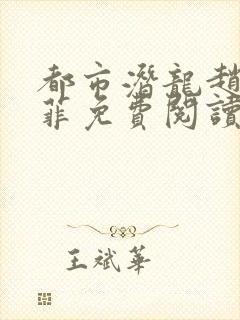 都市潛龍趙
菲免費閱讀
王斌華